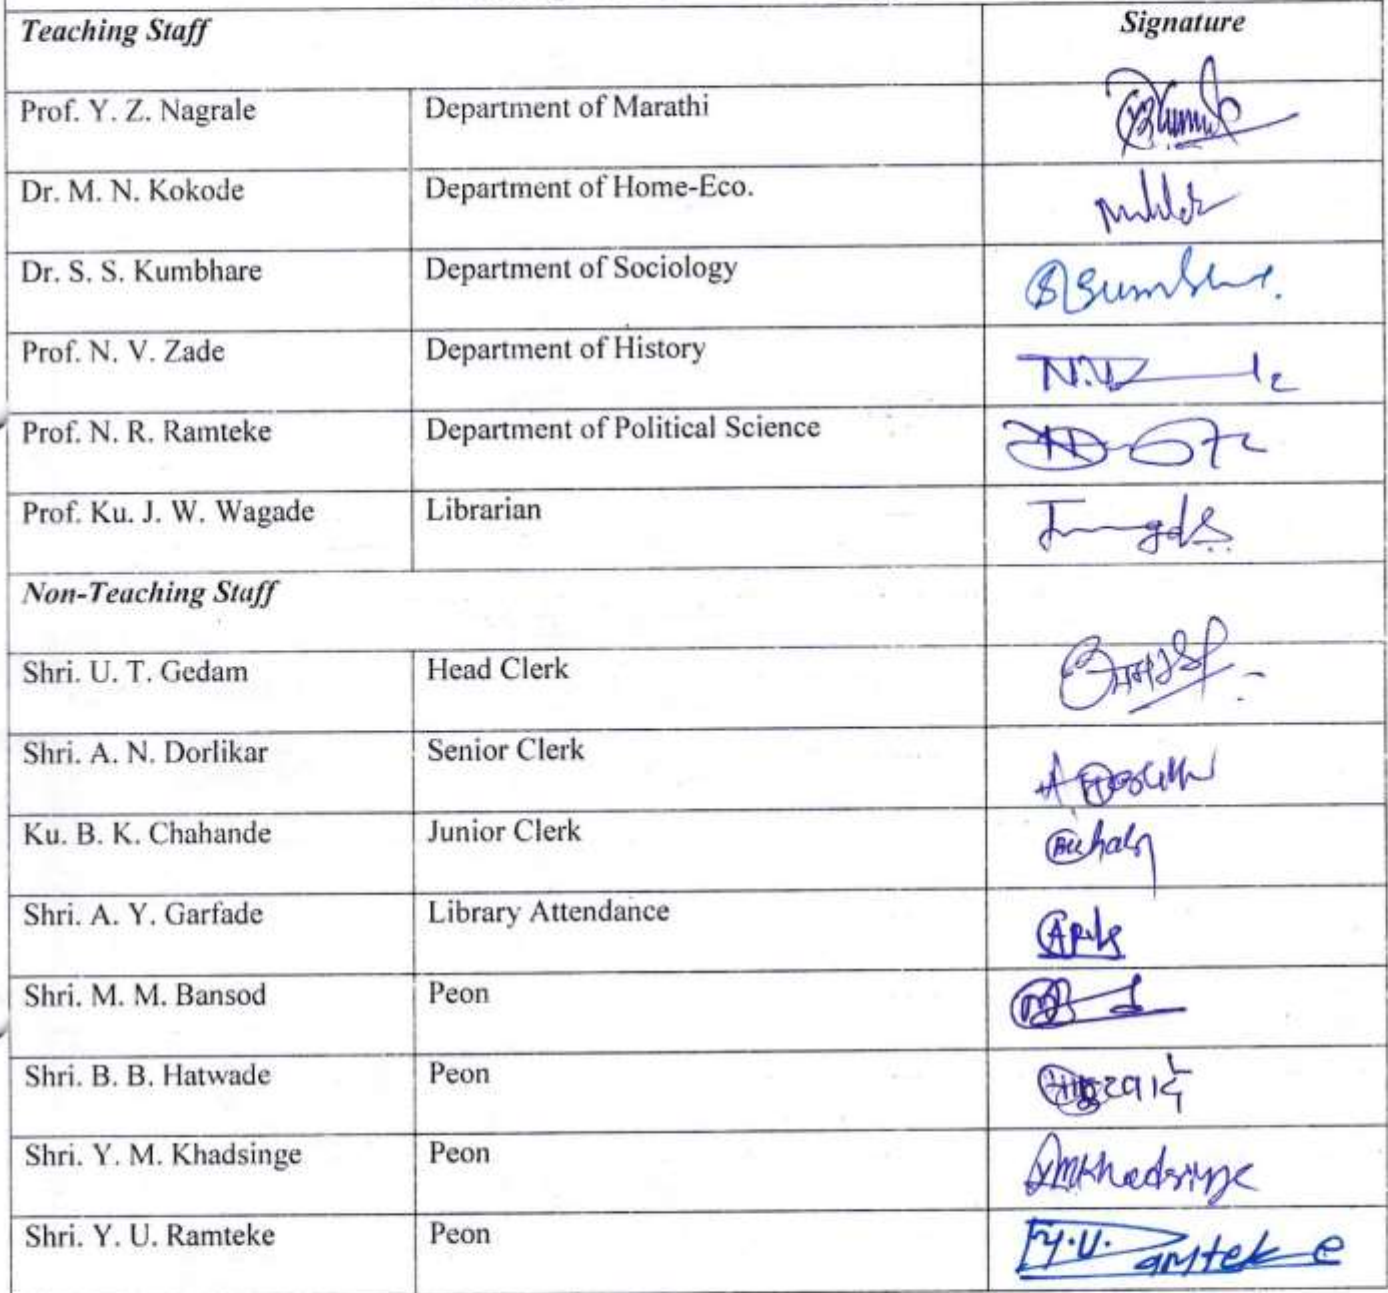 Teaching Staff Signature
Prof. Y. Z. Nagrale Department of Marathi
Dr. M. N. Kokode Department of Home-Eco.
Dr. S. S. Kumbhare Department of Sociology
Prof. N. V. Zade Department of History
Prof. N. R. Ramteke Department of Political Science
Prof. Ku. J. W. Wagade Librarian
Non-Teaching Staff
Shri. U. T. Gedam Head Clerk
Shri. A. N. Dorlikar Senior Clerk
Ku. B. K. Chahande Junior Clerk
Shri. A. Y. Garfade Library Attendance
Shri. M. M. Bansod Peon
Shri. B. B. Hatwade Peon
Shri. Y. M. Khadsinge Peon YMKhadsinge
Shri. Y. U. Ramteke Peon Y.U. Ramteke